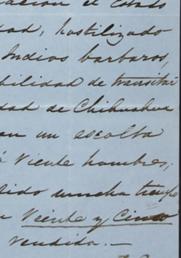 hostilizado
Indios barbaros,
bilidad de transitar
dad de Chihuahua
an un escolta
Viente hombres,
dido mucha
a Viente y Cinco
vendida.—